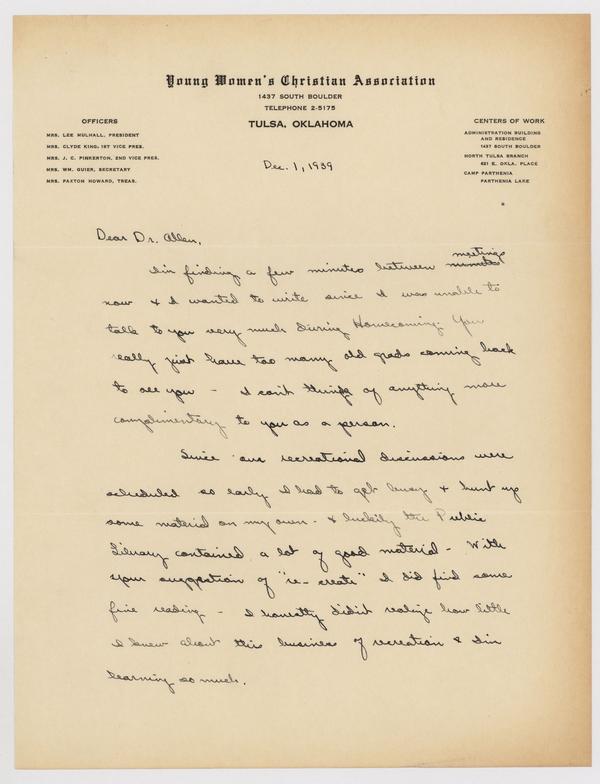 Young Women's Christian Association
1437 SOUTH BOULDER
TELEPHONE 2-5175
TULSA, OKLAHOMA
OFFICERS
MRS. LEE MULHALL, PRESIDENT
MRS. CLYDE KING, 1ST VICE PRES.
MRS. J. C. PINKERTON, 2ND VICE PRES.
MRS. WM. GUIER, SECRETARY
MRS. PAXTON HOWARD, TREAS.
CENTERS OF WORK
ADMINISTRATION BUILDING
AND RESIDENCE
1437 SOUTH BOULDER
NORTH TULSA BRANCH
621 E. OKLA. PLACE
CAMP PARTHENIA
PARTHENIA LAKE
Dec. 1, 1939
Dear Dr. Allen,
I'm finding a few minutes between meetings
now & I wanted to write since I was unable to
talk to you very much during Homecoming. You
really just have too many old grads coming back
to see you - I can't think of anything more
complimentary to you as a person.
Since our recreational discussions were
scheduled so early I had to get busy & hunt up
some material on my own - & luckily the Public
Library contained a lot of good material - With
your suggestion of "re-create" I did find some
fine reading - I honestly didn't realize how little
I knew about this business of recreation & I'm
learning so much.